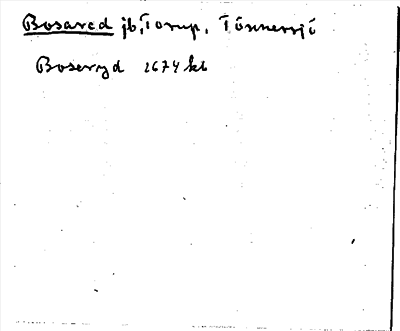 Bosared jb, Torup, Tönnersjö
Boseryd 1674 kb